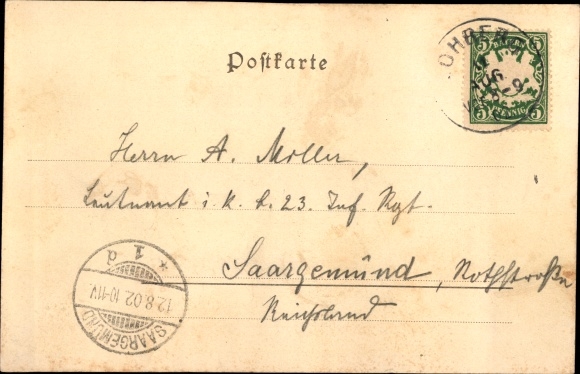 Postkarte
BAYERN
5 5
5 PFENNIG 5
11 AUG
Herrn A. Moller,
Leutnant i. K. b. 23. Inf. Rgt.
Saargemünd, Rothstraße
Reichsland
SAARGEMÜND
12.8.02.10-11V.
* 1 d